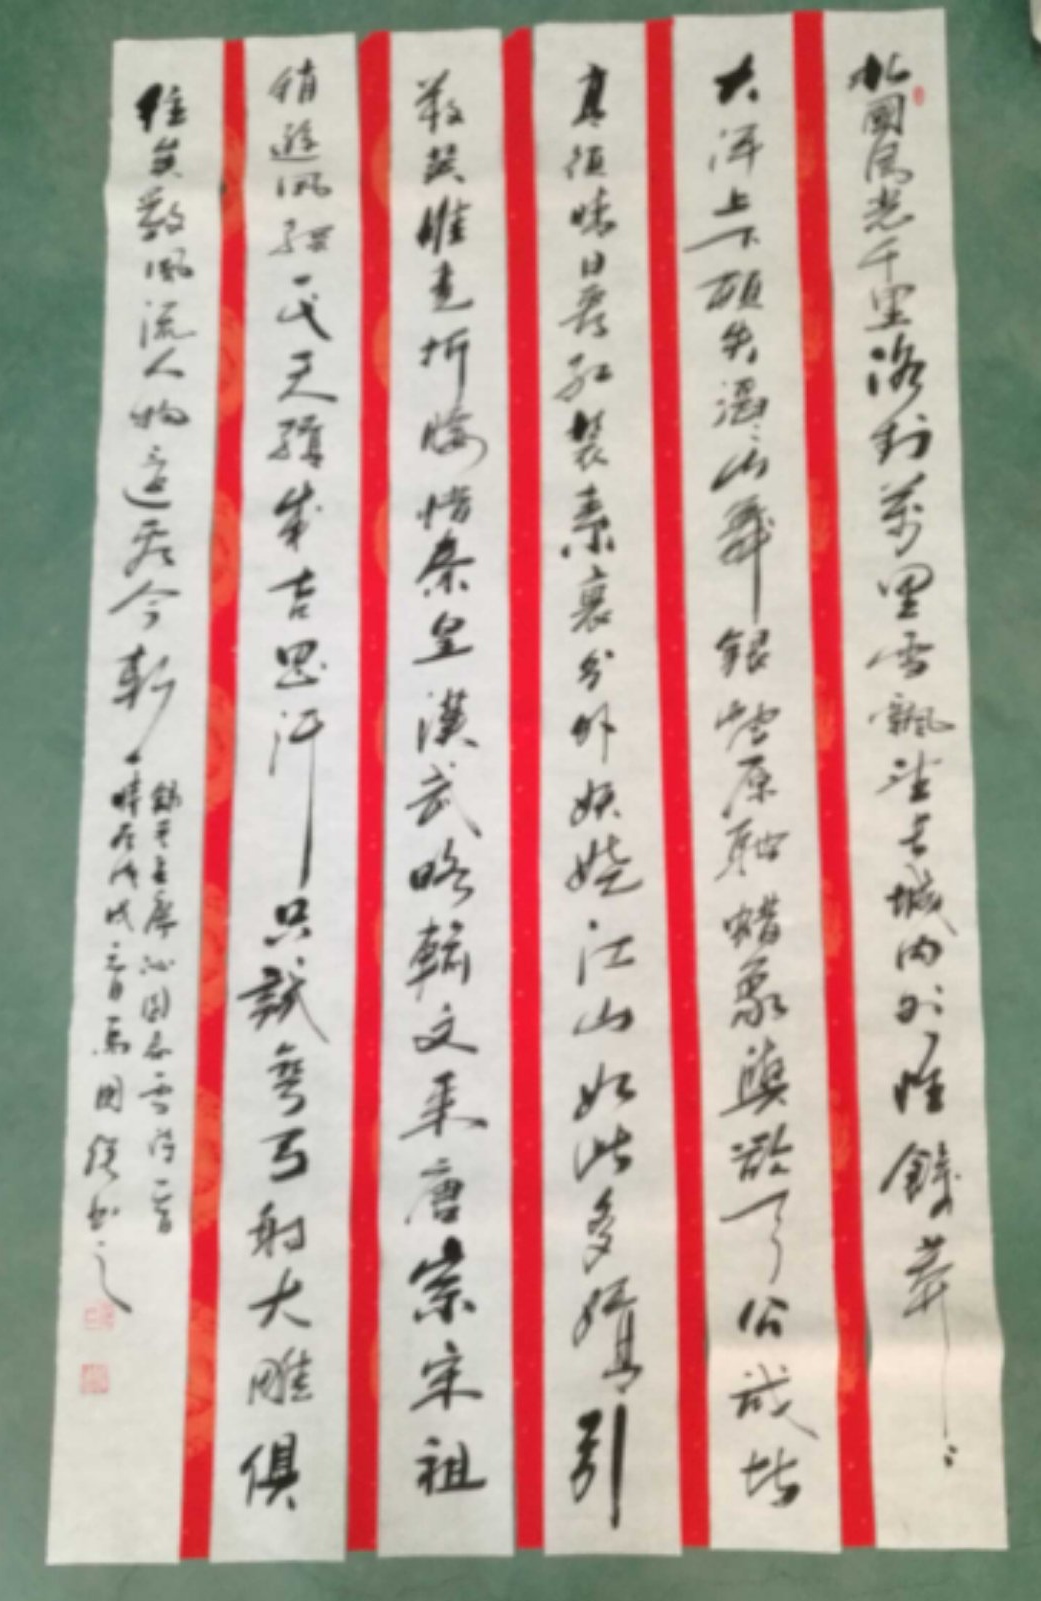 北國風光千里冰封萬里雪飄望長城內外惟餘莽〻
大河上下頓失滔〻山舞銀蛇原馳蠟象與欲天公試比
高須晴日看紅裝素裹分外妖嬈江山如此多嬌引
英雄競折腰惜秦皇漢武略輸文采唐宗宋祖
稍遜風騷一代天驕成吉思汗只識彎弓射大雕俱
往矣數風流人物還看今朝
錄毛主席沁園春雪詩一首
時在戊戌